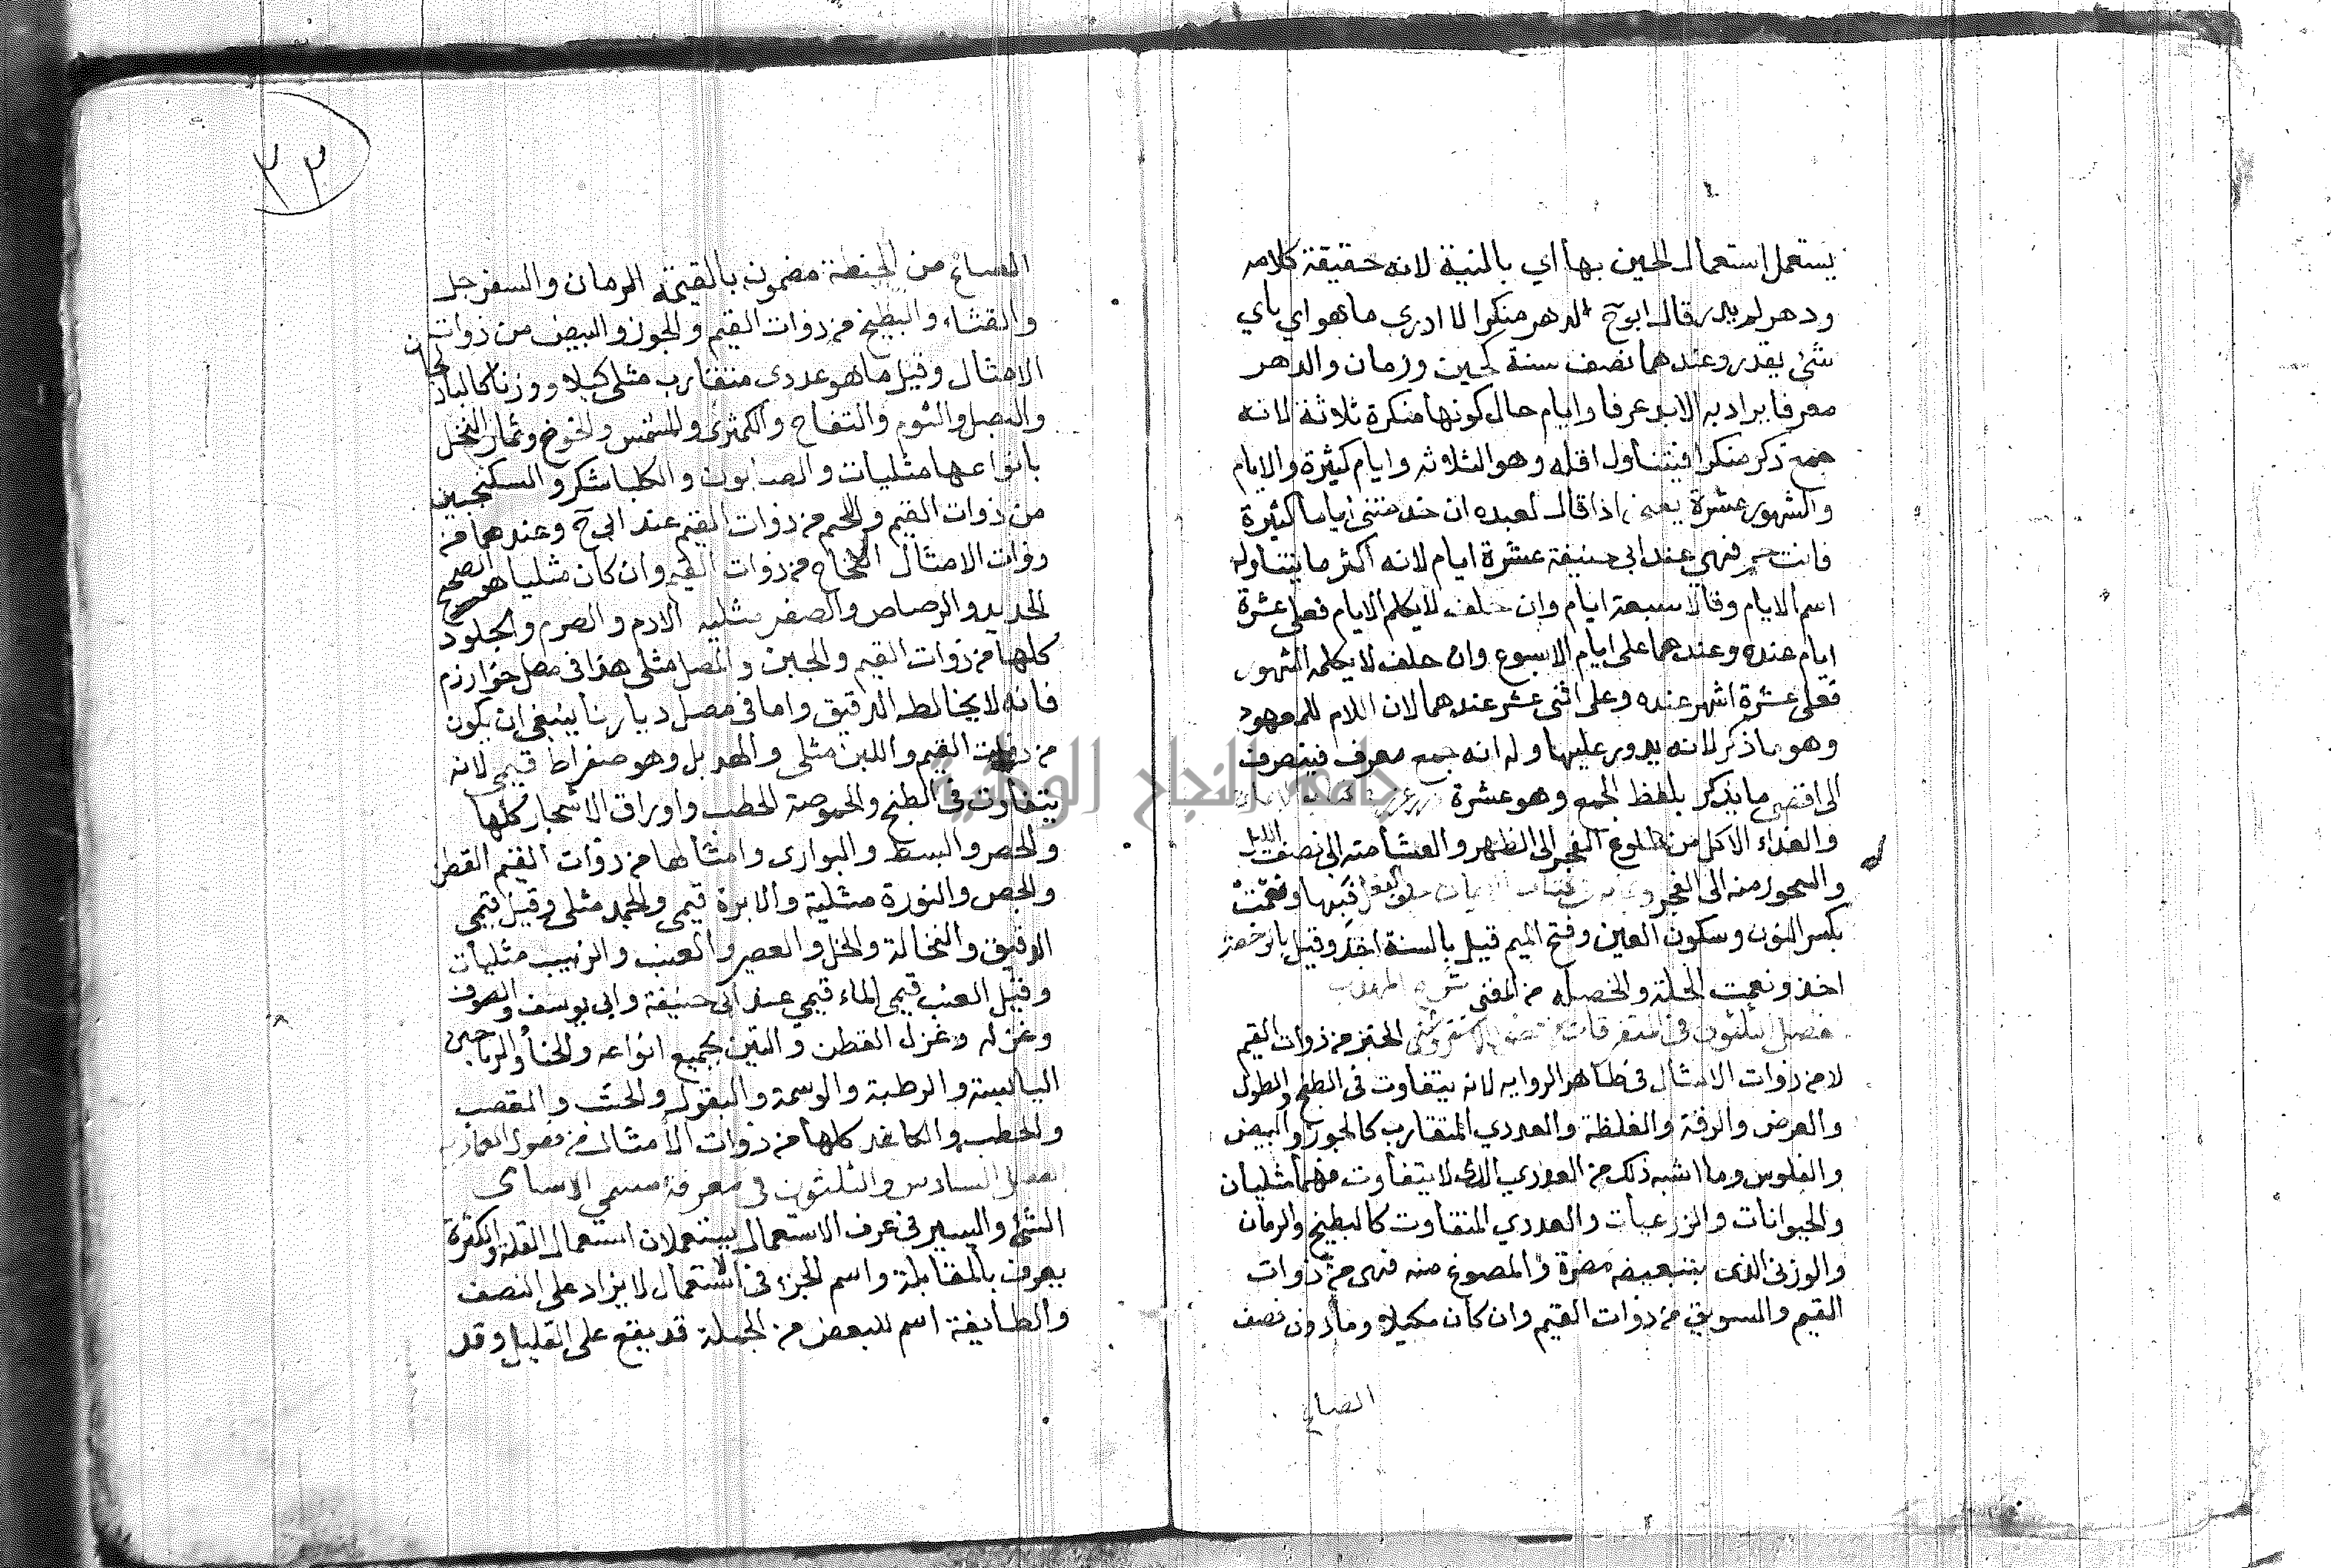 يستعمل استعمال الحين بها اي بالنية لانه حقيقة كلامه
ودهر لم يدر قال ابو ح الدهر منكرا لا ادري ما هو اي باي
شئ يقدر وعندهما نصف سنة كحين وزمان والدهر
معرفا يراد به الابد عرفا وايام حال كونها منكرة ثلاثة لانه
جمع ذكر منكرا فيتناول اقله وهو الثلاثه وايام كثيرة والايام
والشهور عشرة يعني اذا قال لعبده ان خدمتني اياما كثيرة
فانت حر فهي عند ابي حنيفة عشرة ايام لانه اكثر ما يتناوله
اسم الايام وقالا سبعة ايام وان حلف لا يكلم الايام فعلى عشرة
ايام عنده وعندهما على ايام الاسبوع وان حلف لا يكلمه الشهور
فعلى عشرة اشهر عنده وعلى اثنى عشر عندهما لان اللام للمعهود
وهو ما ذكر لانه يدور عليها وله انه جمع معرف فينصرف
الى اقصى ما يذكر بلفظ الجمع وهو عشرة
والغداء الاكل من طلوع الفجر الى الظهر والعشا منه الى نصف الليل
والسحور منه الى الفجر فبها ونعمت
بكسر النون وسكون العين وفتح الميم قيل بالسنة اخذ وقيل بالرخصة
اخذ ونعمت الخلة والخصلة من المغني
فصل في المتفرقات الخبز من ذوات القيم
لا من ذوات الامثال في ظاهر الرواية لانه يتفاوت في الطبخ والطول
والعرض والرقة والغلظة والعددي المتقارب كالجوز والبيض
والفلوس وما اشبه ذلك من العددي الذي لا يتفاوت فهما مثليان
والحيوانات والزرعيات والعددي المتفاوت كالبطيخ والرمان
والوزني الذي بتبعيضه مضرة والمصوغ منه فهي من ذوات
القيم والسويق من ذوات القيم وان كان مكيلا وما دون نصف
الصاع
٣٣
الصاع من الحنطة مضمون بالقيمة الرمان والسفرجل
والقثاء والبطيخ من ذوات القيم والجوز والبيض من ذوات
الامثال وقيل ما هو عددي متقارب مثلي كيلا ووزنا كالباذنجان
والبصل والثوم والتفاح والكمثرى والمشمش والخوخ وثمار النخل
بانواعها مثليات والصابون والكلباشكر والسكنجبين
من ذوات القيم واللحم من ذوات القيم عند ابي ح وعندهما من
ذوات الامثال من ذوات القيم وان كان مثليا هو الصحيح
الحديد والرصاص والصفر مثلية الادم والصرم والجلود
كلها من ذوات القيم والجبن والمصل مثلي هذا في مصل خوارزم
فانه لا يخالطه الدقيق واما في مصل ديارنا ينبغي ان يكون
من ذوات القيم واللبن مثلي والهدبل وهو صقراط قيمي لانه
يتفاوت في الطبخ والحموضة الحطب واوراق الاشجار كلها
والحصر والبسط والبواري وامثالها من ذوات القيم القطن
والجص والنورة مثلية والابرة قيمي والجمد مثلي وقيل قيمي
الدقيق والنخالة والخل والعصير والعنب والزبيب مثليات
وقيل العنب قيمي الماء قيمي عند ابي حنيفة وابي يوسف والصوف
وغزله وغزل القطن والتبن بجميع انواعه والحنا والرياحين
اليابسة والرطبة والوسمة والبقول والخشب والقصب
والحطب والكاغد كلها من ذوات الامثال من فصول
الفصل السادس والثلثون في معرفة مسمى الاسامي
الشئ واليسير في عرف الاستعمال يستعملان استعمال القلة والكثرة
يعرف بالمقابلة واسم الجزء في الاستعمال لا يزاد على النصف
والطايفة اسم للبعض من الجملة قد يقع على القليل وقد
جامعة النجاح الوطنية